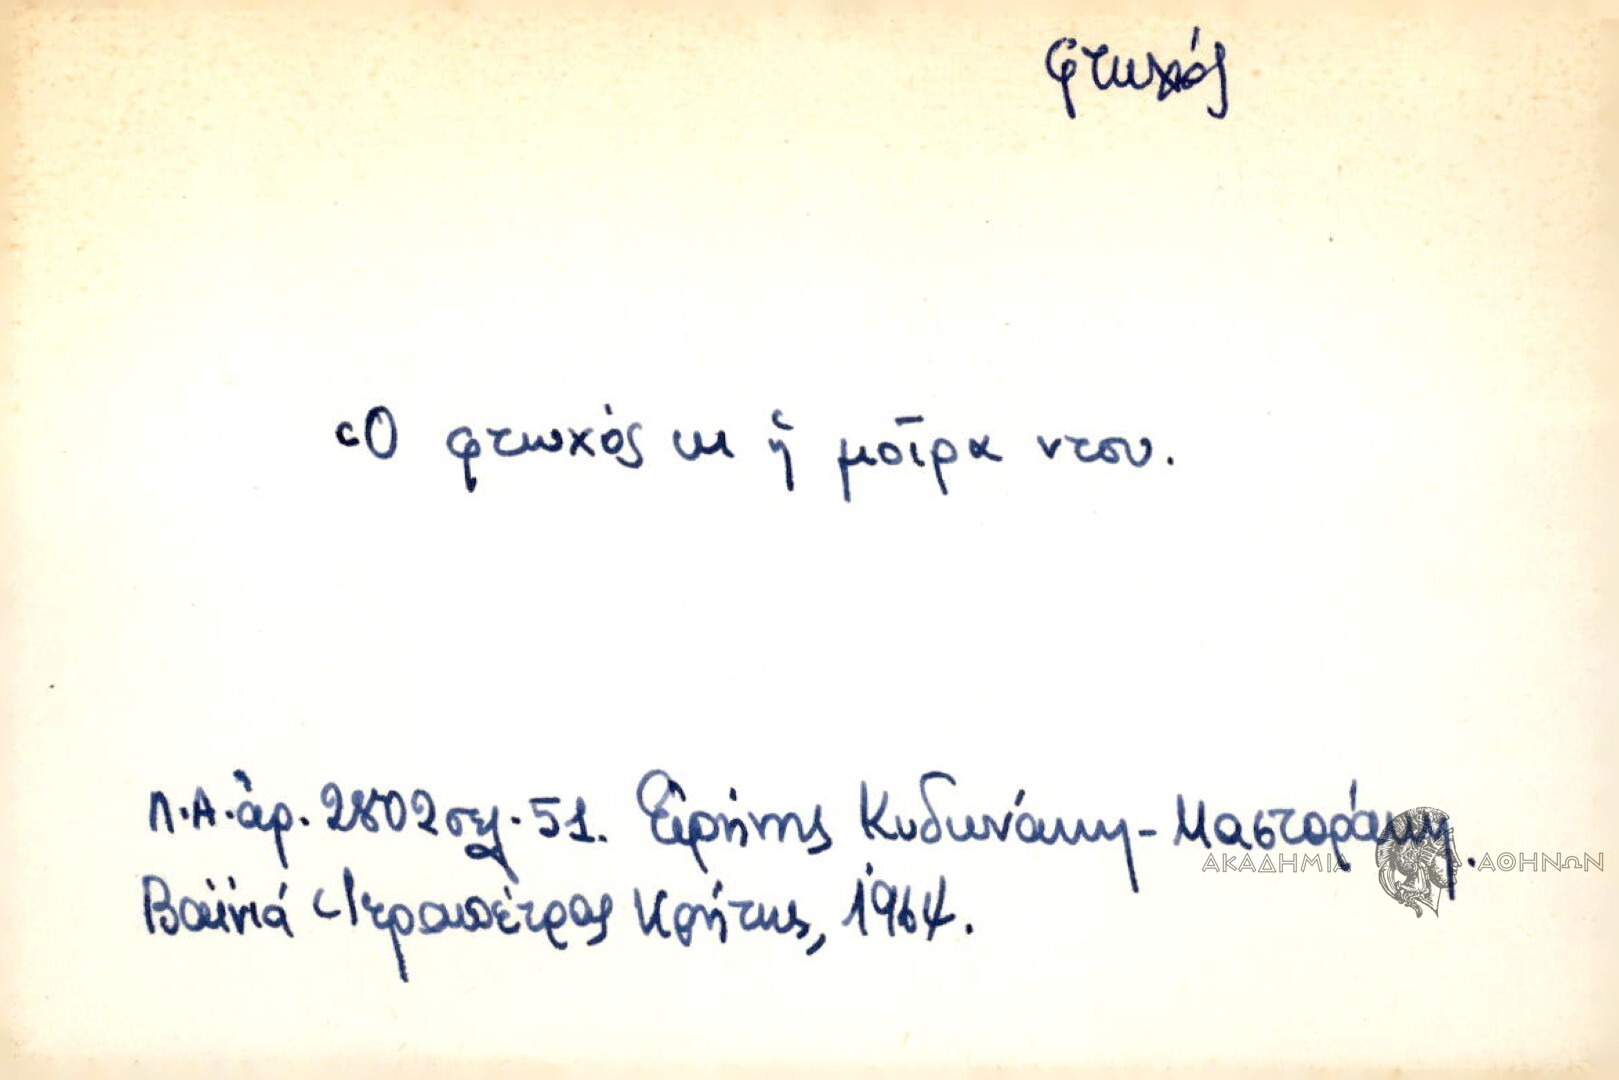 φτωχός
Ὁ φτωχός κι ἡ μοῖρα ντου.
Λ.Α. ἀρ. 2802 σελ. 51. Εἰρήνης Κυδωνάκη - Μαστοράκη.
Βαϊνιά Ἱεραπέτρας Κρήτης, 1964.
ΑΚΑΔΗΜΙΑ ΑΘΗΝΩΝ